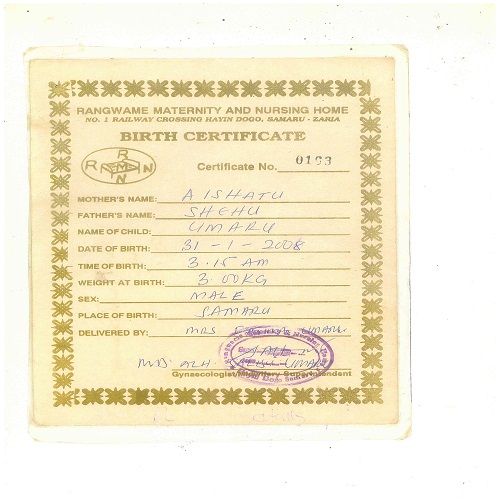 RANGWAME MATERNITY AND NURSING HOME
NO. 1 RAILWAY CROSSING HAYIN DOGO, SAMARU - ZARIA
BIRTH CERTIFICATE
Certificate No. 0193
MOTHER'S NAME: AISHATU
FATHER'S NAME: SHEHU
NAME OF CHILD: UMARU
DATE OF BIRTH: 31-1-2008
TIME OF BIRTH: 3.15 AM
WEIGHT AT BIRTH: 3.00KG
SEX: MALE
PLACE OF BIRTH: SAMARU
DELIVERED BY: MRS UMARU
ALH. UMARU
Gynaecologist/Midwifery Superintendent